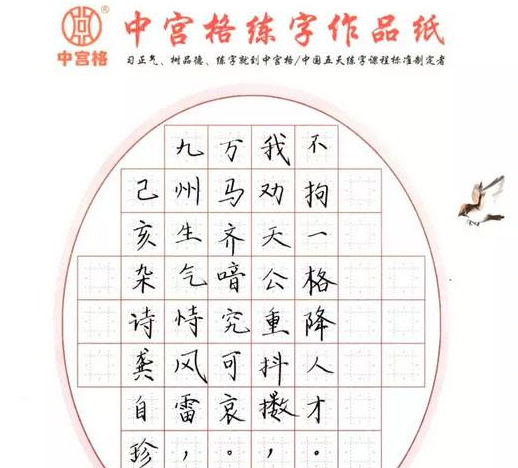 中宫格®
中宫格练字作品纸
习正气、树品德、练字就到中宫格/中国五天练字课程标准制定者
己亥杂诗龚自珍
九州生气恃风雷，
万马齐喑究可哀。
我劝天公重抖擞，
不拘一格降人才。